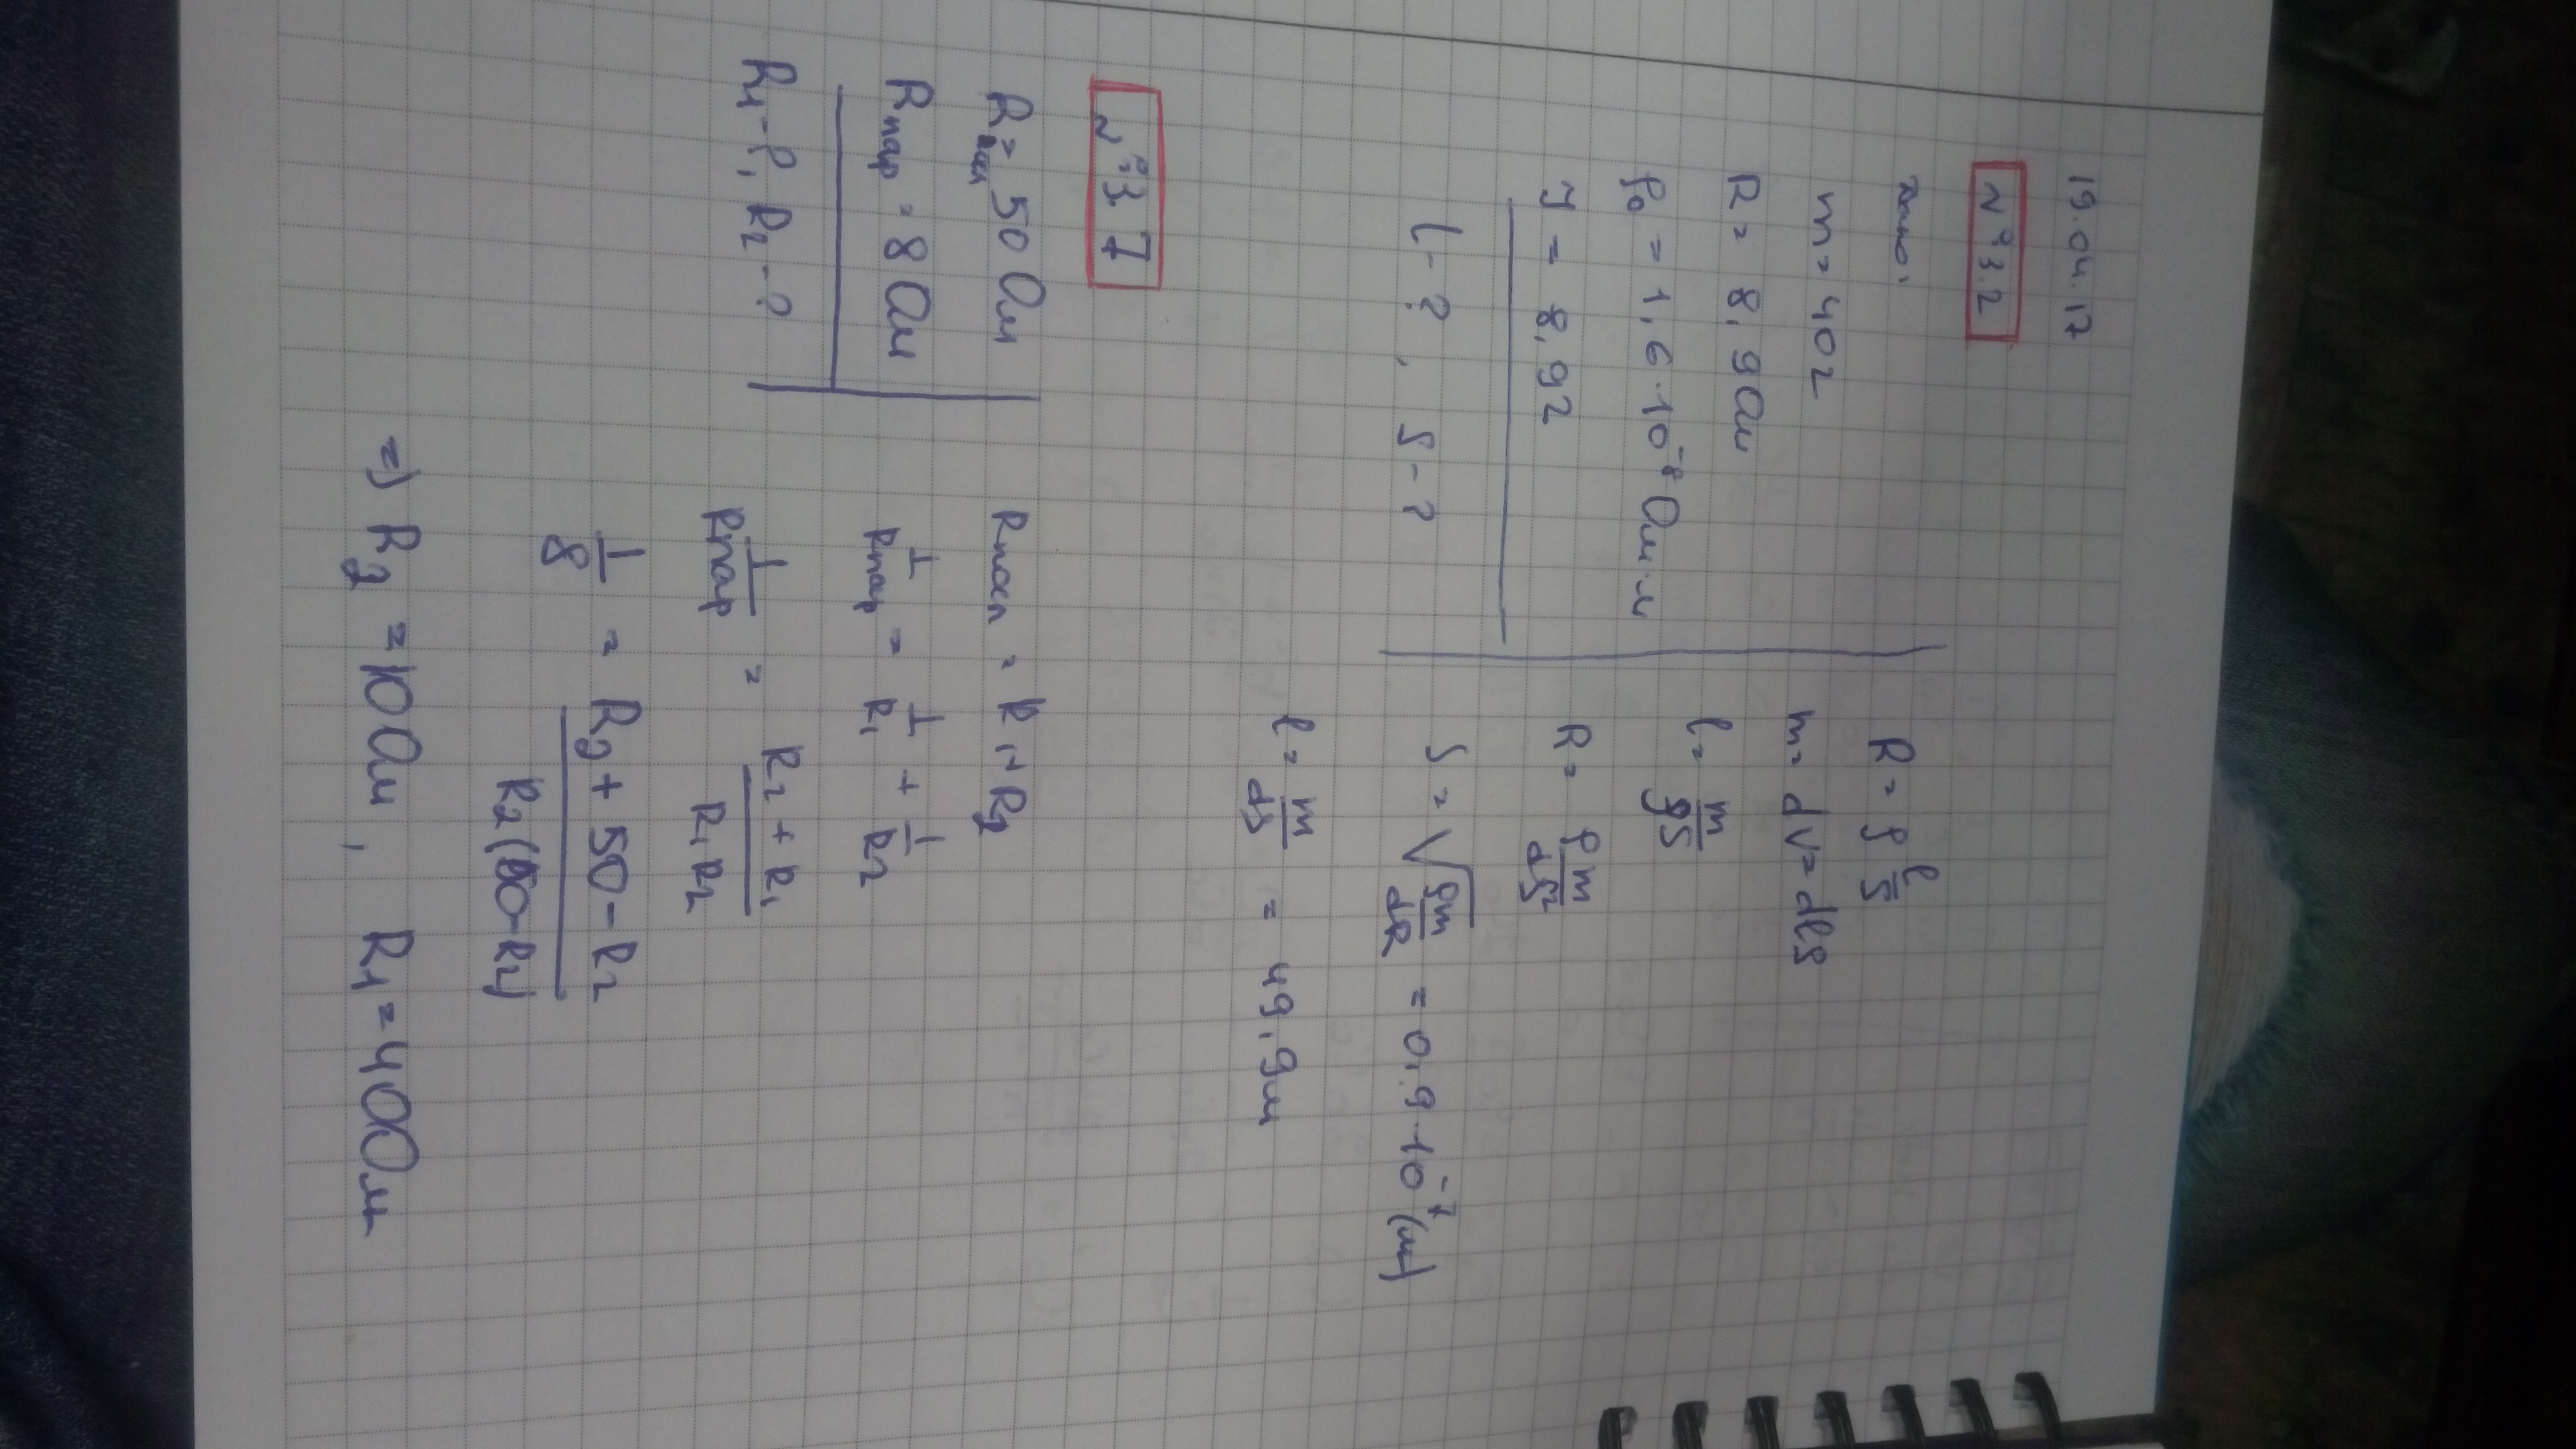 19.04.17
№ 3.2
m = 40г
R = 8,9 Ом
ρ₀ = 1,6·10⁻⁸ Ом·м
= 8,92
l - ? , S - ?
R = ρ l/S
m = dV = dlS
l = m/gS
R = ρm/dS²
S = √(ρm/dR) = 0,9·10⁻⁷ (м)
l = m/dS = 49,9м
№ 3 7
Rпосл = 50 Ом
Rпар = 8 Ом
R₁ - ?, R₂ - ?
Rпосл = R₁ + R₂
1/Rпар = 1/R₁ + 1/R₂
1/Rпар = (R₂ + R₁)/(R₁R₂)
1/8 = (R₂ + 50 - R₂)/(R₂(50 - R₂))
=> R₂ = 10 Ом, R₁ = 40 Ом